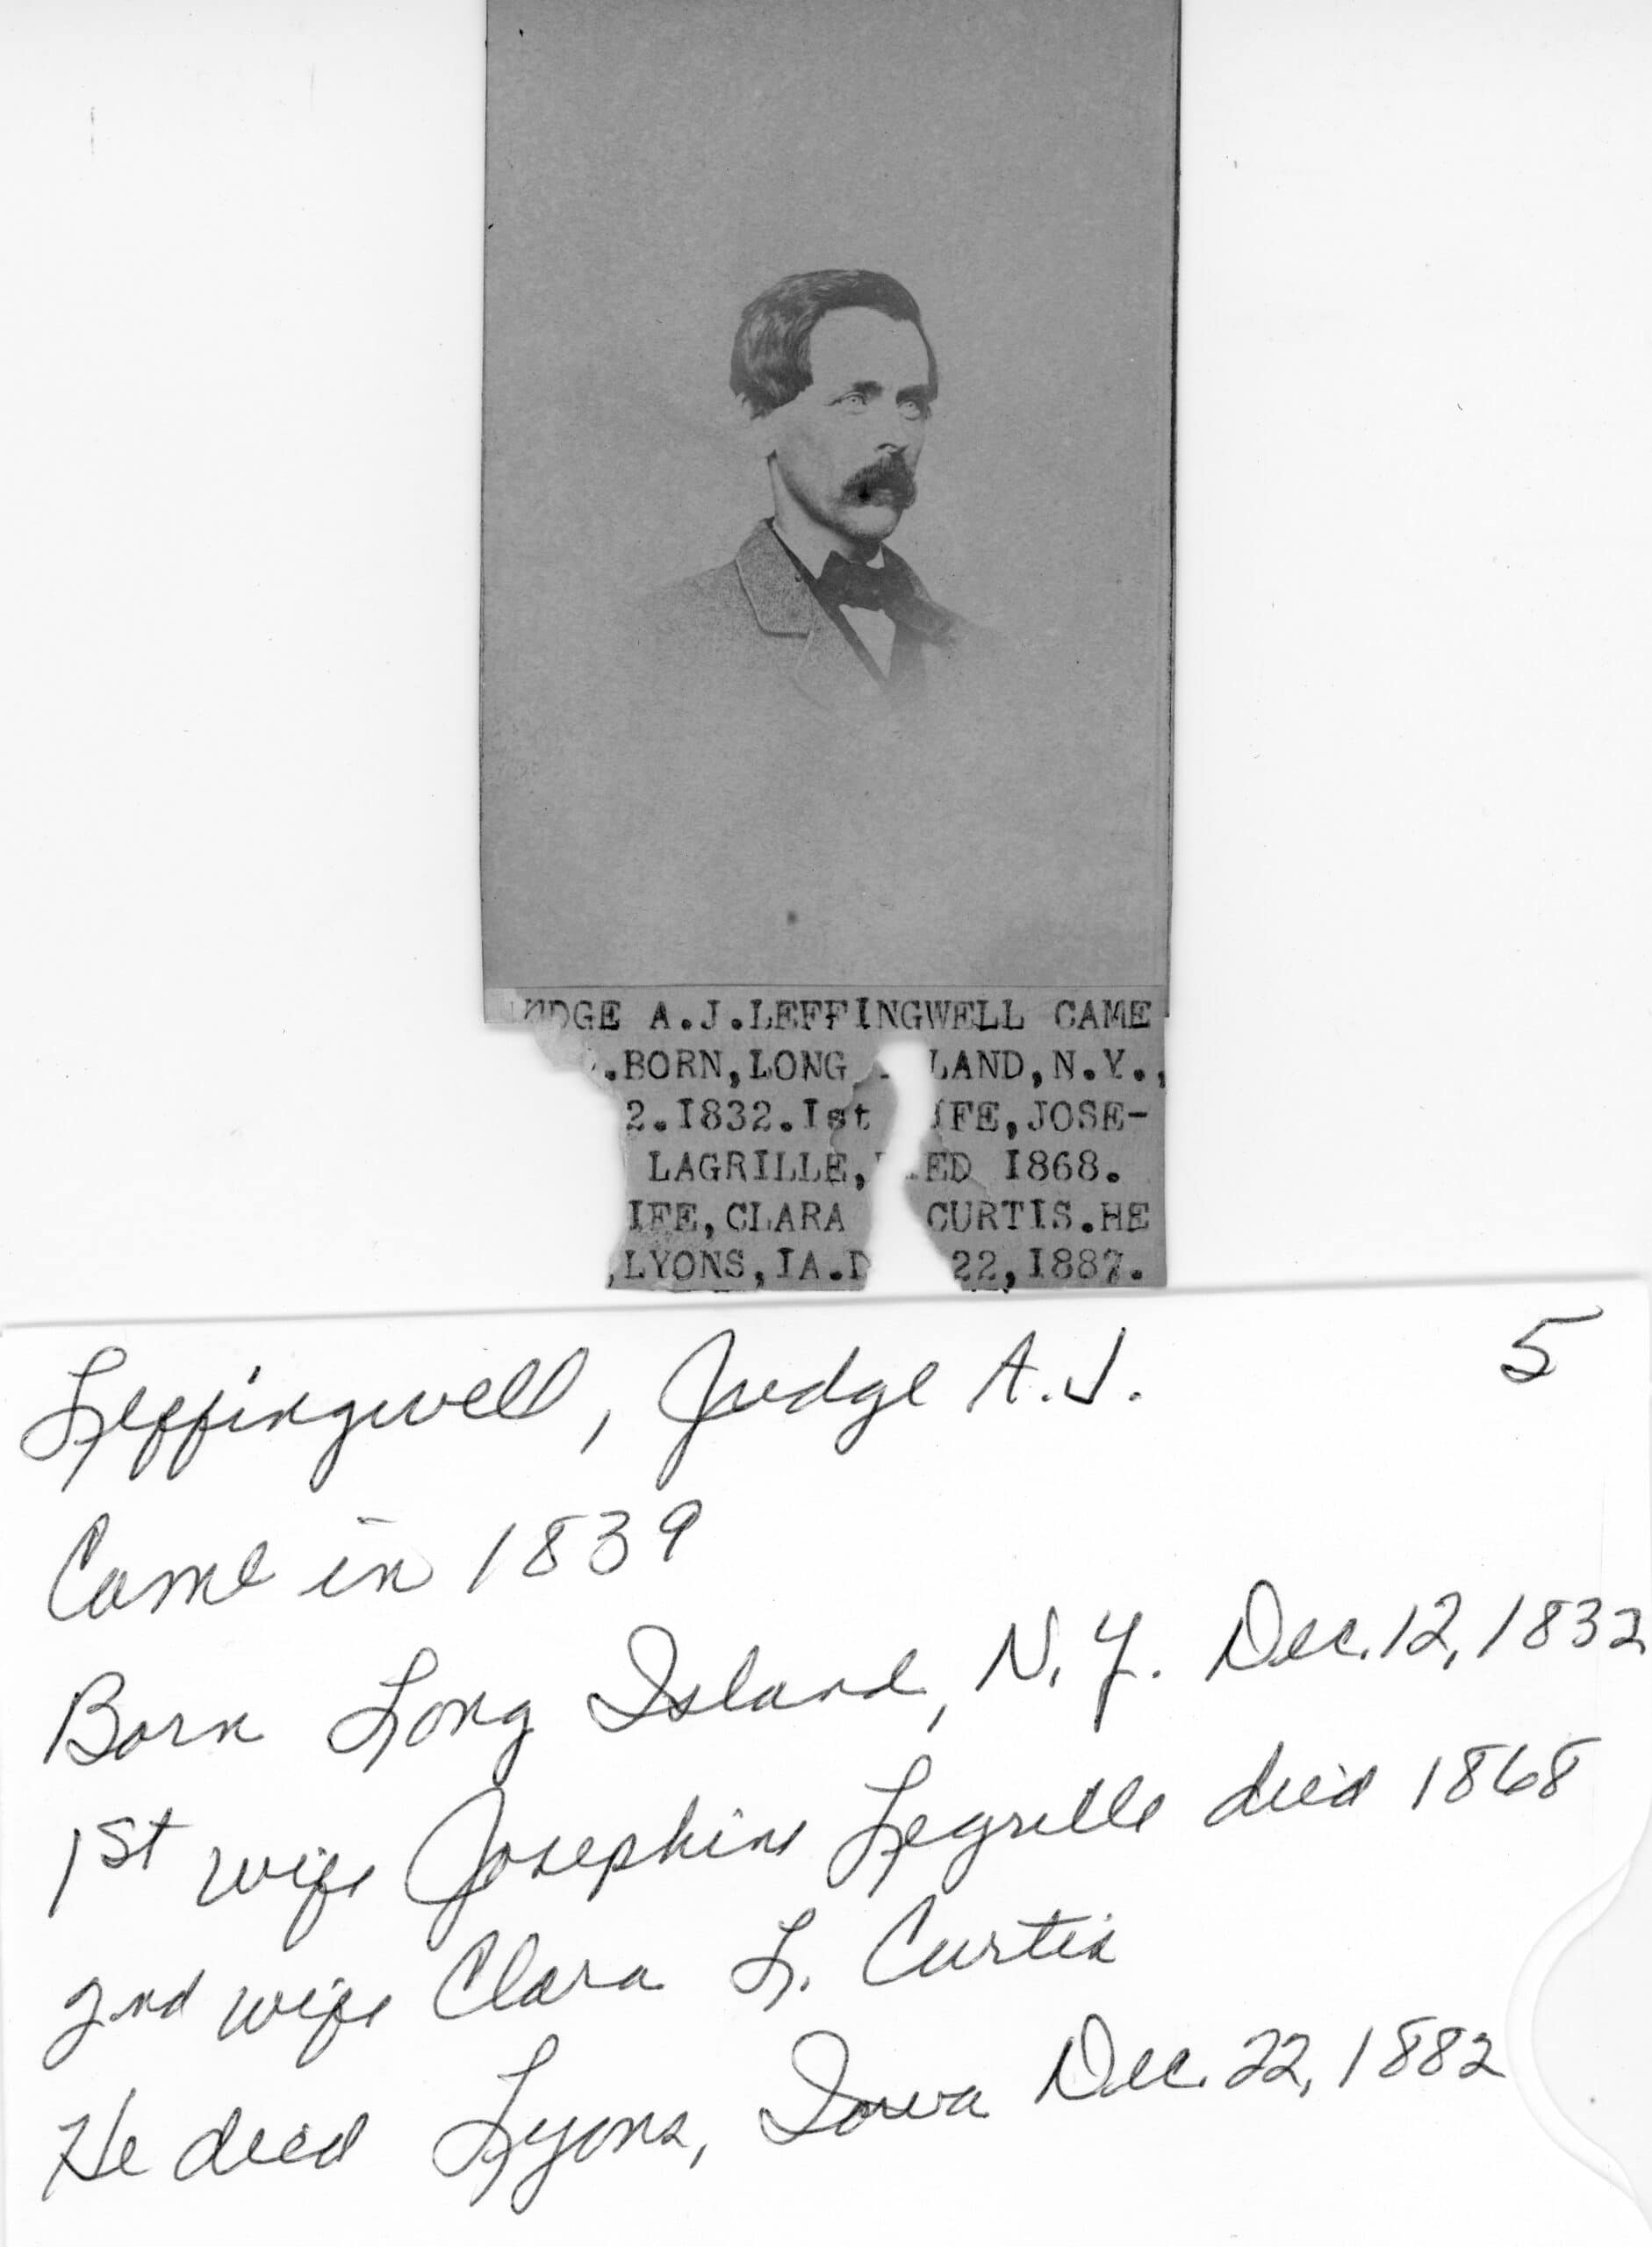 JUDGE A.J.LEFFINGWELL CAME
.BORN,LONG LAND,N.Y.,
2.1832.1st IFE,JOSE-
LAGRILLE, ED 1868.
IFE,CLARA CURTIS.HE
,LYONS,IA.D 22,1887.
Leffingwell, Judge A.J. 5
Came in 1839
Born Long Island, N.Y. Dec. 12, 1832
1st wife Josephine Legrille died 1868
2nd wife Clara L. Curtis
He died Lyons, Iowa Dec. 22, 1882